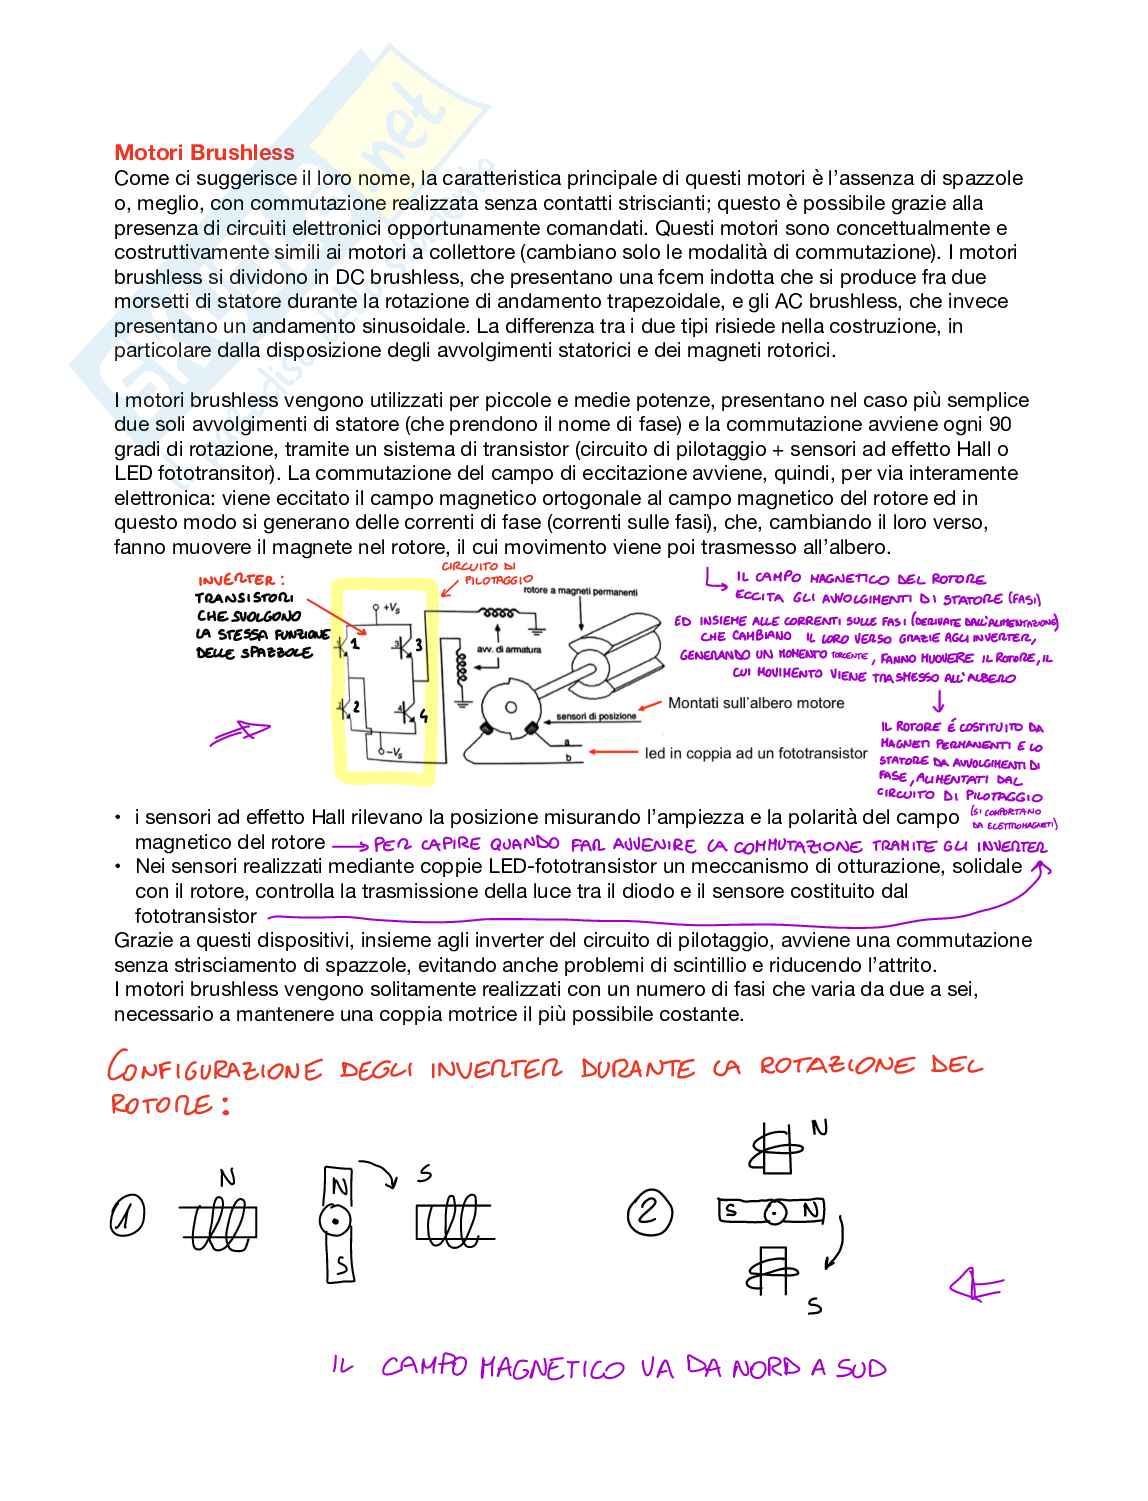 Motori Brushless
Come ci suggerisce il loro nome, la caratteristica principale di questi motori è l’assenza di spazzole
o, meglio, con commutazione realizzata senza contatti striscianti; questo è possibile grazie alla
presenza di circuiti elettronici opportunamente comandati. Questi motori sono concettualmente e
costruttivamente simili ai motori a collettore (cambiano solo le modalità di commutazione). I motori
brushless si dividono in DC brushless, che presentano una fcem indotta che si produce fra due
morsetti di statore durante la rotazione di andamento trapezoidale, e gli AC brushless, che invece
presentano un andamento sinusoidale. La differenza tra i due tipi risiede nella costruzione, in
particolare dalla disposizione degli avvolgimenti statorici e dei magneti rotorici.
I motori brushless vengono utilizzati per piccole e medie potenze, presentano nel caso più semplice
due soli avvolgimenti di statore (che prendono il nome di fase) e la commutazione avviene ogni 90
gradi di rotazione, tramite un sistema di transistor (circuito di pilotaggio + sensori ad effetto Hall o
LED fototransitor). La commutazione del campo di eccitazione avviene, quindi, per via interamente
elettronica: viene eccitato il campo magnetico ortogonale al campo magnetico del rotore ed in
questo modo si generano delle correnti di fase (correnti sulle fasi), che, cambiando il loro verso,
fanno muovere il magnete nel rotore, il cui movimento viene poi trasmesso all’albero.
INVERTER:
TRANSISTORI
CHE SVOLGONO
LA STESSA FUNZIONE
DELLE SPAZZOLE
CIRCUITO DI
PILOTAGGIO
+Vs
1
3
2
4
-Vs
rotore a magneti permanenti
avv. di armatura
sensori di posizione
a
b
Montati sull’albero motore
led in coppia ad un fototransistor
IL CAMPO MAGNETICO DEL ROTORE
ECCITA GLI AVVOLGIMENTI DI STATORE (FASI)
ED INSIEME ALLE CORRENTI SULLE FASI (DERIVATE DALL'ALIMENTAZIONE)
CHE CAMBIANO IL LORO VERSO GRAZIE AGLI INVERTER,
GENERANDO UN MOMENTO TORCENTE, FANNO MUOVERE IL ROTORE, IL
CUI MOVIMENTO VIENE TRASMESSO ALL'ALBERO
IL ROTORE É COSTITUITO DA
MAGNETI PERMANENTI E LO
STATORE DA AVVOLGIMENTI DI
FASE, ALIMENTATI DAL
CIRCUITO DI PILOTAGGIO
(SI COMPORTANO
DA ELETTROMAGNETI)
• i sensori ad effetto Hall rilevano la posizione misurando l’ampiezza e la polarità del campo
magnetico del rotore PER CAPIRE QUANDO FAR AVVENIRE LA COMMUTAZIONE TRAMITE GLI INVERTER
• Nei sensori realizzati mediante coppie LED-fototransistor un meccanismo di otturazione, solidale
con il rotore, controlla la trasmissione della luce tra il diodo e il sensore costituito dal
fototransistor
Grazie a questi dispositivi, insieme agli inverter del circuito di pilotaggio, avviene una commutazione
senza strisciamento di spazzole, evitando anche problemi di scintillio e riducendo l’attrito.
I motori brushless vengono solitamente realizzati con un numero di fasi che varia da due a sei,
necessario a mantenere una coppia motrice il più possibile costante.
CONFIGURAZIONE DEGLI INVERTER DURANTE LA ROTAZIONE DEL
ROTORE:
1
N
N
S
S
2
N
S N
S
IL CAMPO MAGNETICO VA DA NORD A SUD